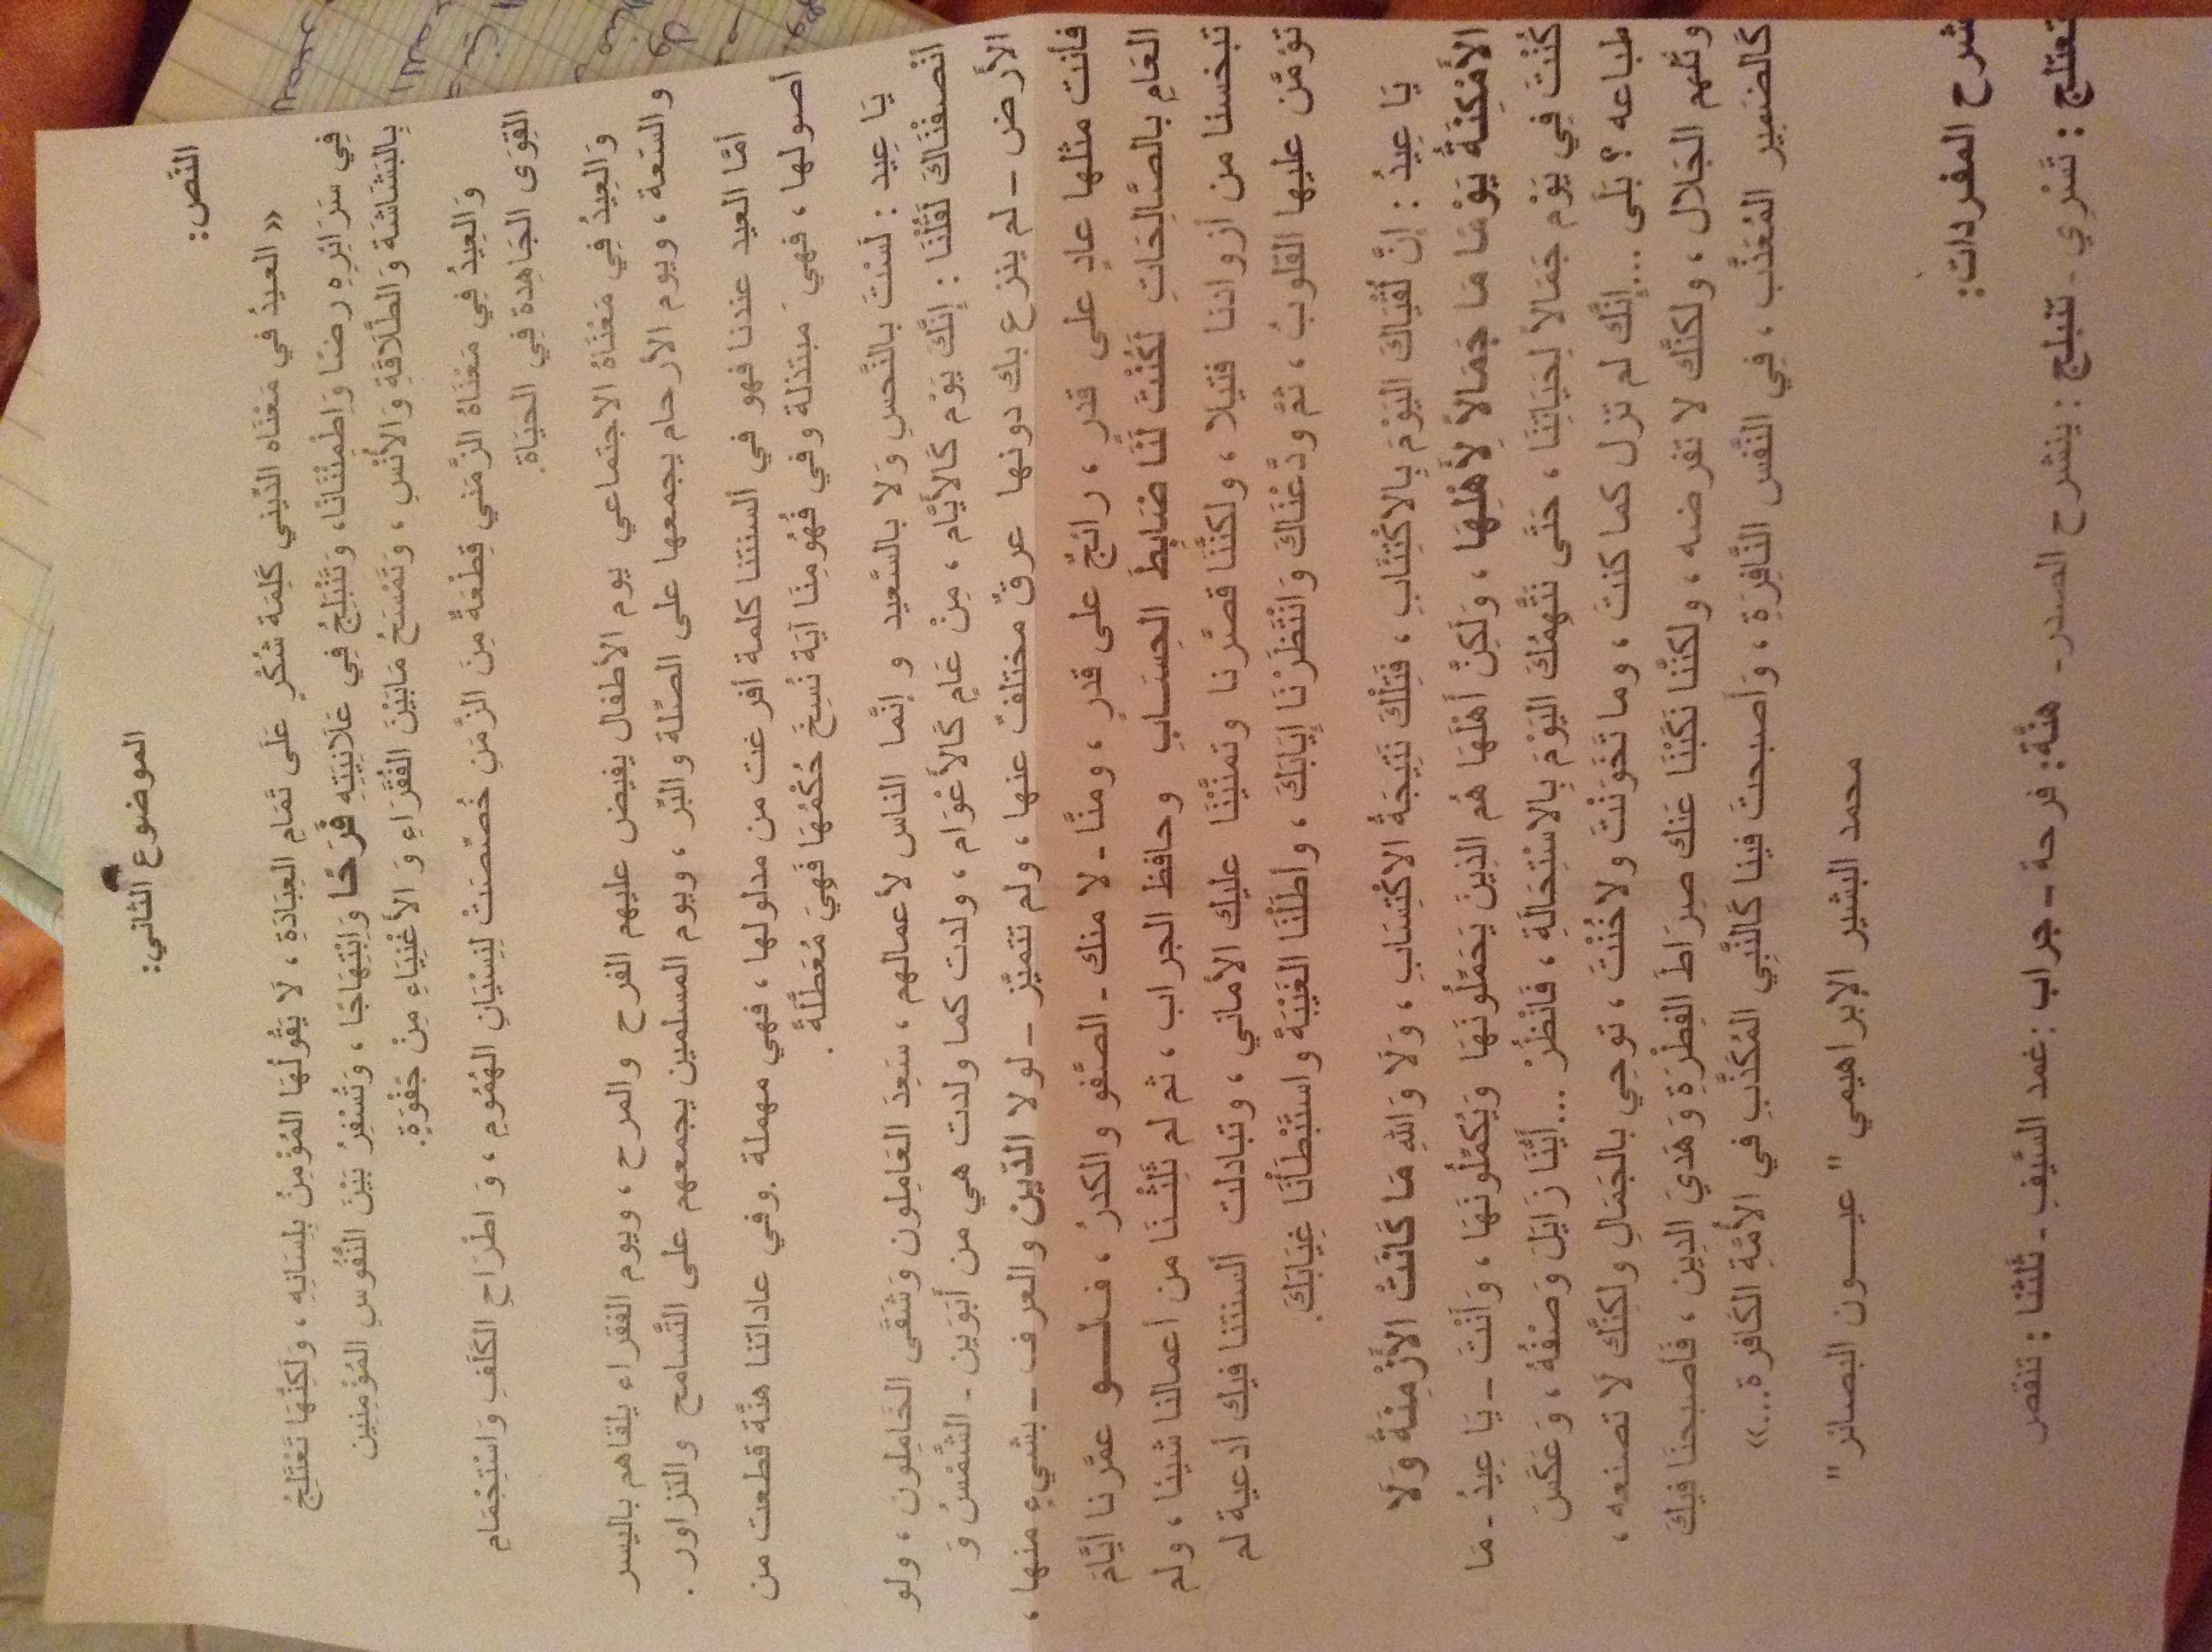 الموضوع الثاني:
النّص:
« العيدُ في مَعْنَاه الدِّيني كَلِمَة شُكْرٍ عَلَى تَمَامِ العِبَادَةِ ، لَا يَقُولُهَا المُؤْمِنُ بِلِسَانِهِ ، وَلَكِنَّهَا تَعْتَلِجُ
فِي سَرَائِرِهِ رِضًا وَاِطْمِئْنَانًا، وَتَنْبَلِجُ فِي عَلَانِيَتِهِ فَرَحًا وَابْتِهَاجًا ، وَتُسْفِرُ بَيْنَ النُّفُوسِ المُؤْمِنِين
بِالبَشَاشَة وَالطَّلَاقَةِ وَالأُنْسِ ، وَتَمْسَحُ مَابَيْنَ الفُقَرَاءِ وَ الأَغْنِيَاءِ مِنْ جَفْوَةٍ.
وَالعِيدُ فِي مَعْنَاهُ الزَّمَني قِطْعَةٌ مِنَ الزَّمَنِ خُصِّصَتْ لِنِسْيَانِ الهُمُومِ ، وَ اطْرَاحِ الكَلَفِ وَاسْتِجْمَامِ
القِوَى الجَاهِدةِ فِي الحَيَاةِ.
وَالعِيدُ فِي مَعْنَاهُ الاجتماعي يوم الأطفال يفيض عليهم الفرح والمرح ، ويوم الفقراء يلقاهم باليسر
والسّعة ، ويوم الأرحام يجمعها على الصّلة والبّر ، ويوم المسلمين يجمعهم على التَّسامح والتّزاور .
أمّا العيد عندنا فهو في ألسنتنا كلمة أفرغت من مدلولها ، فهي مهملة .وفي عاداتنا هنَّة قطعت من
أصولها ، فهيَ مبتذلة وفي فُهُومِنَا آيَة نُسِخَ حُكْمُهَا فَهِيَ مُعَطَّلَةٌ .
يَا عِيد : لَسْتَ بالنَّحسِ وَلا بالسَّعيد و إنّما الناس لأعمالهم ، سَعِدَ العَامِلون وَشَقَى الخَامِلونَ ، ولو
أنْصفْنَاكَ لَقُلْنَا : إنَّكَ يَوْم كَالأَيَّام ، مِنْ عَامٍ كَالأَعْوَام ، ولدت كما ولدت هي من أَبَوَين - الشَّمْسُ وَ
الأرض - لم ينزع بك دونها عرقٌ مختلفٌ عنها ، ولم تتميّز - لولا الدّين والعرف - بشيءٍ منها ،
فأنت مثلها عادٍ على قدر ، رائحٌ على قدرٍ ، ومنَّا - لا منك - الصَّفو والكدرُ ، فلـــو عمَّرنا أيَّامَ
العَامِ بالصَّالِحَاتِ لَكُنْتَ لَنَا ضَابِطَ الحِسَابِ وحافظ الجراب ، ثم لم تَلِتْنَا من أعمالنا شيئا ، ولم
تبخسنا من أزواننا فتيلا ، ولكنَّنَا قصَّرنا وتمنَّيْنَا عليك الأماني ، وتبادلت ألسنتنا فيك أدعية لم
تؤمَّن عليها القلوبُ ، ثمَّ ودَّعْنَاكَ وَانْتَظَرْنَا إيَابَكَ ، وأطَلْنَا الغَيْبَةَ واستَبْطَأْنَا غِيَابَكَ.
يَا عِيدُ : إنَّ لُقْيَاكَ اليَوْمَ بِالاكْتِئَابِ ، فَتِلْكَ نَتِيجَةُ الاكْتِسَابِ ، وَلَا وَاللهِ مَا كَانَتْ الأَزْمِنَةُ وَلَا
الأَمْكِنَةُ يَوْمًا مَا جَمَالاً لأَهْلِهَا ، وَلَكِنَّ أَهْلَهَا هُم الذِينَ يَجَمِّلُونَهَا وَيُكَمِّلُونَهَا ، وَأَنْتَ - يَا عِيدُ - مَا
كُنْتَ فِي يَوْم جَمَالاً لِحَيَاتِنَا ، حَتَّى نَتَّهِمُكَ اليَوْمَ بِالاسْتِحَالَةِ ، فَانْظُرْ ...أَيُّنَا زَايَلَ وَصْفُهُ ، وَعَكَسَ
طباعه ؟ بَلَى ...إنَّك لم تزل كما كنتَ ، وما تَخَوَنْتَ ولاخُنْتَ ، توحِي بالجَمَالِ ولكِنَّكَ لَا تصنعه ،
وتُلهم الجَلال ، ولكنَّك لا تفرضه ، ولكنَّنا نَكَبْنَا عَنك صِرَاطَ الفِطْرَةِ وَهَدْيَ الدِين ، فَأصبحنَا فيكَ
كَالضَمِير المُعَذَّب ، فِي النَّفس النَّافِرَةِ ، وَأصبحتَ فينا كَالنَّبِي المُكَذَّبِ في الأُمَّةِ الكَافرة...»
محمد البشير الإبراهيمي " عيـــون البصائر "
شرح المفردات:
تعتلج : تَسْرِي - تنبلج : ينشرح الصدر - هنَّة: فرحة - جراب : غمد السَّيفِ - تلتنا : تنقص